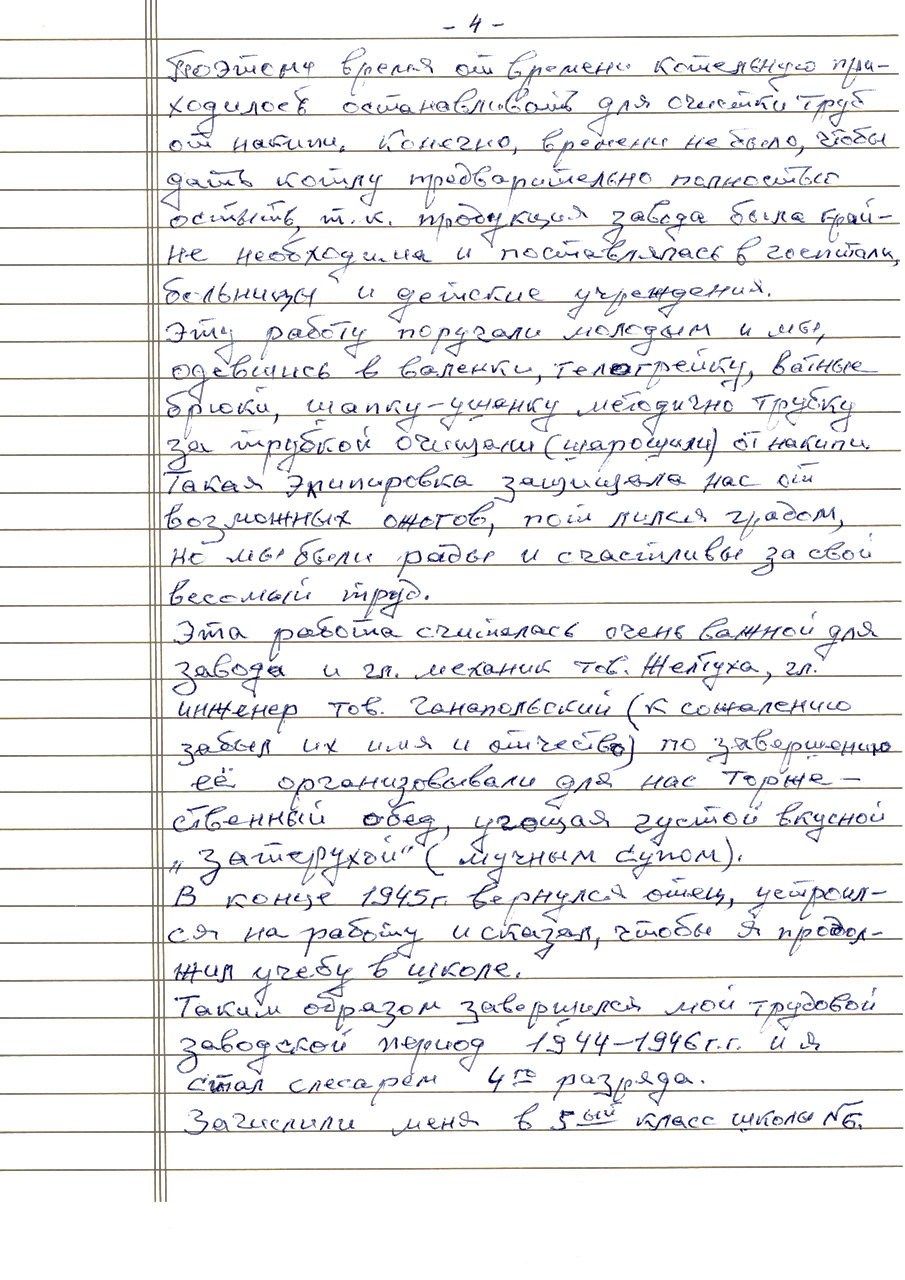 - 4 -
Поэтому время от времени котельную при-
ходилось останавливать для очистки труб
от накипи. Конечно, времени не было, чтобы
дать котлу предварительно полностью
остыть, т.к. продукция завода была край-
не необходима и поставлялась в госпитали,
больницы и детские учреждения.
Эту работу поручали молодым и мы,
одевшись в валенки, телогрейку, ватные
брюки, шапку-ушанку методично трубку
за трубкой очищали (шарошили) от накипи.
Такая экипировка защищала нас от
возможных ожогов, пот лился градом,
но мы были рады и счастливы за свой
весомый труд.
Эта работа считалась очень важной для
завода и гл. механик тов. Желтуха, гл.
инженер тов. Ганапольский (к сожалению
забыл их имя и отчество) по завершению
её организовывали для нас торже-
ственный обед, угощая густой вкусной
„Затерухой“ (мучным супом).
В конце 1945г. вернулся отец, устроил-
ся на работу и сказал, чтобы я продол-
жил учебу в школе.
Таким образом завершился мой трудовой
заводской период 1944-1946 г.г. и я
стал слесарем 4го разряда.
Зачислили меня в 5ый класс школы №6.